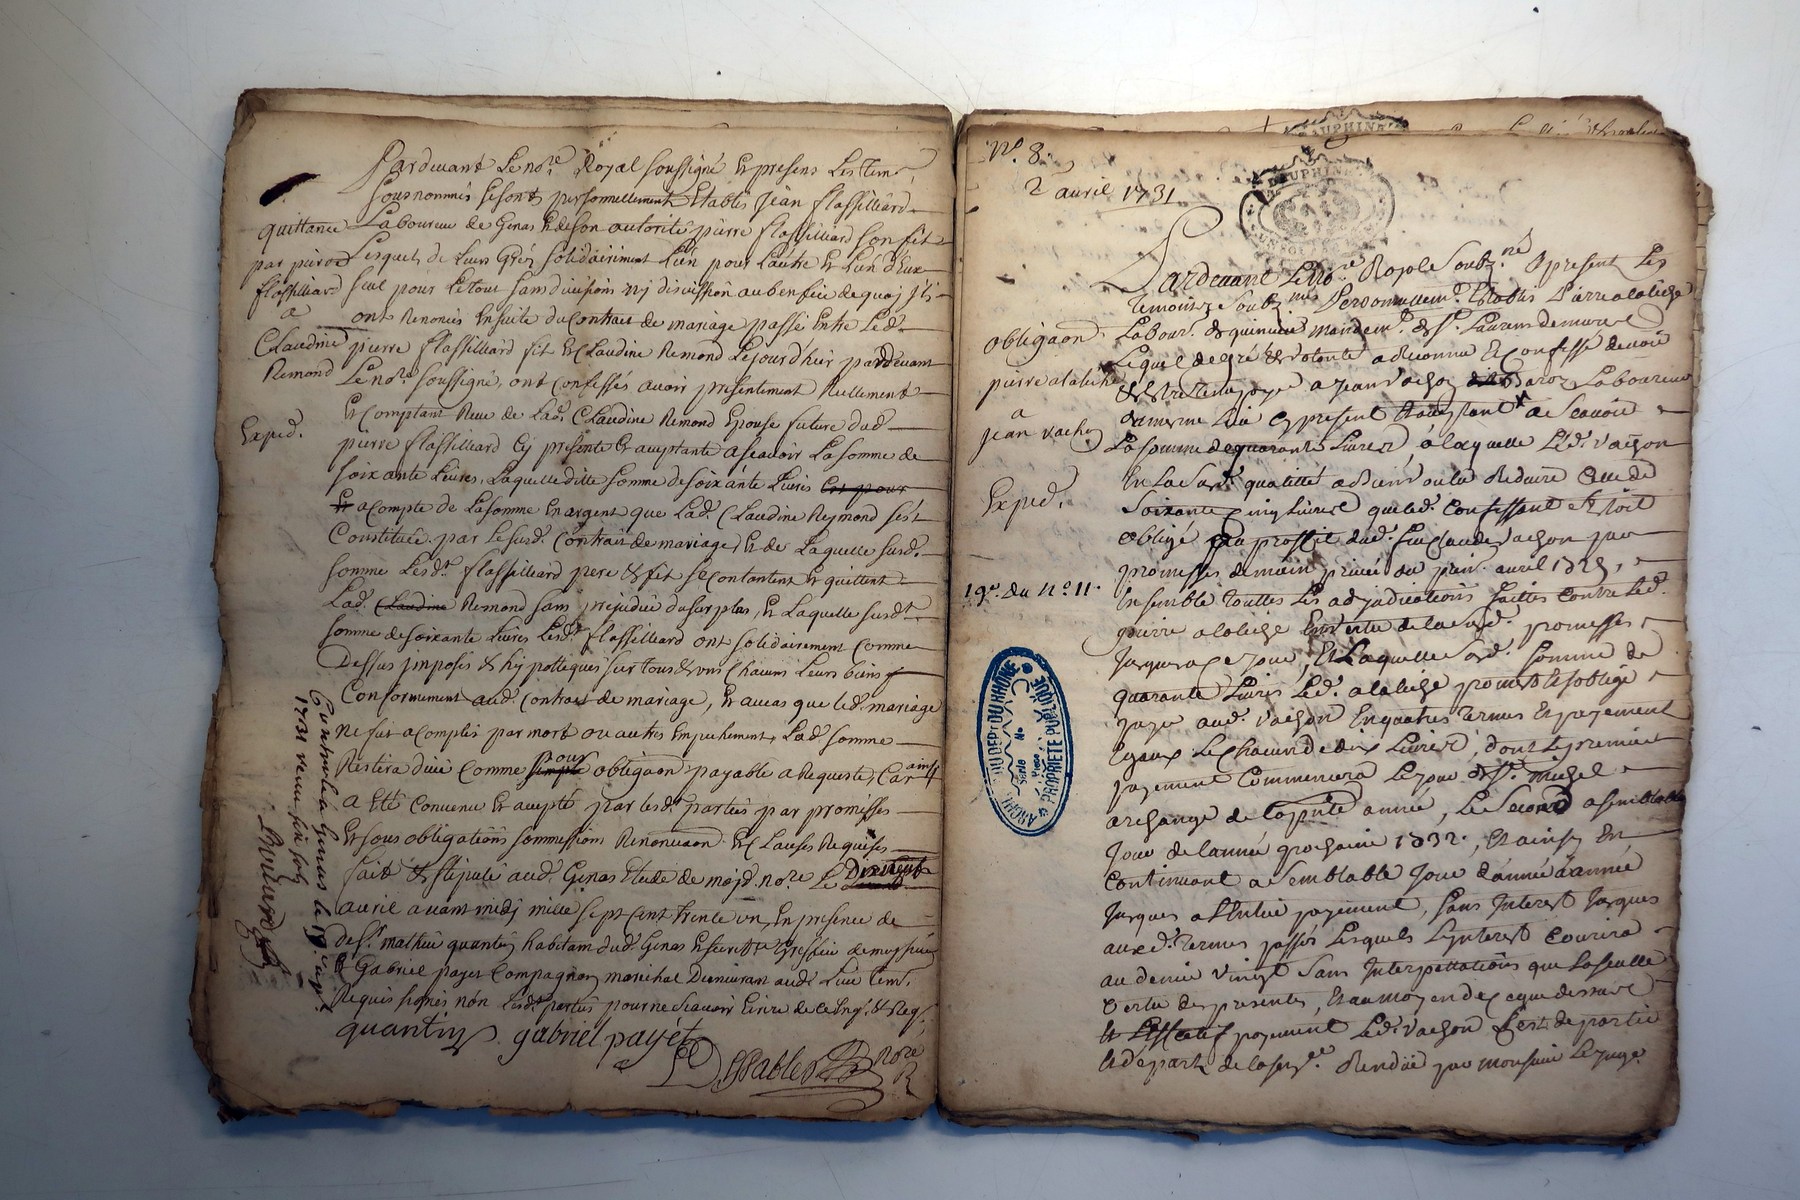 Pardevant Le no.re Royal soussigné et presens Les tem.
sousnommés se sont personnellement Etablis jean flassilliard
Laboureur de Genas et de son autorité pierre flassilliard son fit
Lesquels de Leurs Grés solidairement L'un pour L'autre et L'un d'Eux
seul pour Le tout sans division nj discussion au benfice de quoj jls
ont Renoncés En suite du Contrat de mariage passé Entre Led.
pierre flassilliard fit et Claudine Remond Le jour d'hier pardevant
Le no.re soussigné, ont confessés avoir presentement Reellement
et comptant Receu de Lad. Claudine Remond Epouse future dud.
pierre flassilliard Cy presente et aceptante a scavoir La somme de
soixante Livres, Laquelle ditte somme de soixante Livres
a compte de La somme En argent que Lad. Claudine Reymond s'est
Constituée par Le susd. Contrat de mariage, et de Laquelle susd.
somme Lesd.t flassilliard pere et fit se contantent et quittent
Lad. Claudine Remond sans prejudice du surplus, et Laquelle susd.t
somme de soixante Livres Lesd.t flassilliard ont solidairement comme
Dessus jmposés et hypotteques sur tous et uns Chacuns Leurs biens
Conformement aud. Contrat de mariage, et au cas que led. mariage
ne fut acomplis par mort ou autres Empechement, Lad. somme
Restera düe comme pour obligaon payable a Requeste, Car ainsy
a Eté Convenu et acepté par lesd.t parties par promesses
et sous obligations soummissions Renonciaon et Clauses Requises
fait et stipulé aud. Genas Etude de mojd. no.re Le
avril avant midj mille sept cent trente un, En presence de
de s.r mathieu quantin habitant dud. Genas
et Gabriel payet Compagnon marechal Demeurant aud. Lieu tem.
Requis signés non Lesd. parties pour ne scavoir Ecrire de ce Enq. et Req.
quantin gabriel payet
no.re R
quittance
par pierre
flassilliard
a
Claudine
Remond
Exped.
Controllé a Genas le 19.e
1731
N.º 8.
2e avril 1731
DAUPHINE
Pardevant Le No.re Royal Soubz.né & present Les
Temoins Soubz.més Personnellem.t Establis Pierre alabeche
Labour. de mandem.t de S.t Laurens de mure
Lequel de gré et volonté a Reconnu Et Confessé devoir
a Jean Vachon Laboureur
Lieu cy present a Scavoir
La somme de quarante Livres, a laquelle Led. Vachon
En La Sus.d quallité a Bien voulu Reduire Celle de
Soixante Cinq Livres que led. Confessant Estoit
obligé au proffit dud. feu Claude Vachon par
promesses de main privée du avril
Ensemble Touttes Les adjudications faittes Contre Led.
pierre alabeche En vertu de la sus.d promesses
Jusques a ce jour, Et Laquelle sus.d somme de
quarante Livres Led. alabeche promet et s'oblige
payer aud. Vachon En quatres Termes Et payement
Egaux Le Chacun de dix Livres, dont Le premier
payement Commencera Le jour de S.t Michel
archange de La p.nte année, Le Second a semblable
Jour de l'année prochaine 1732, Et ainsy En
Continuant a Semblable Jour d'année a année
Jusques a L'Entier payement, sans Interest Jusques
aux d. Termes passés Lesquels L'Interest Courira
au denier vingt Sans Interpellations que La seulle
vertu des presentes, Et au moyen de ce que dessus
payement Led. Vachon s'est departie
Et depart de la Rendüe par monsieur Le juge
obligaon
pierre alabeche
a
jean vachon
Exped.
19e. Du N.º 11.
ARCHIVES DU DEP.T DU RHÔNE
Série
No
Pièce
PROPRIÉTÉ PUBLIQUE